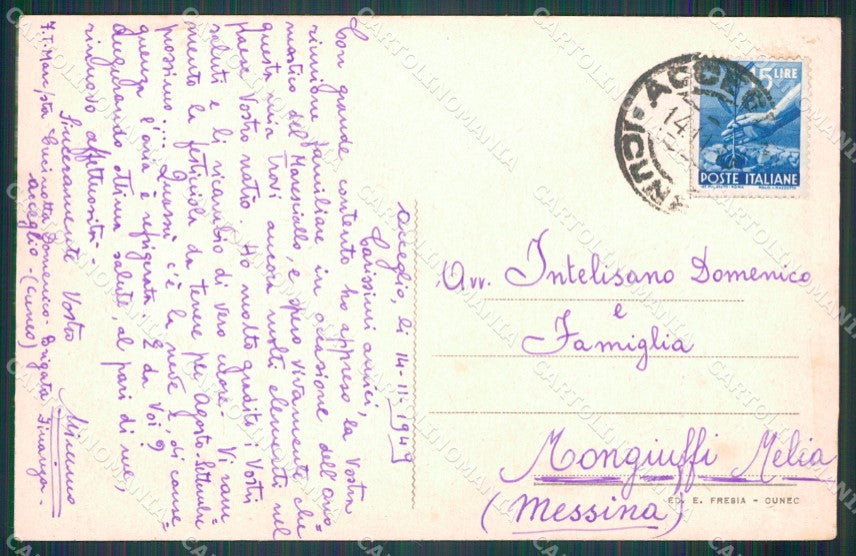 Acceglio, li 14-11-1949
Carissimi amici,
Con grande contento ho appreso la Vostra
riunione familiare in occasione dell'ono=
mastico del Maresciallo, e spero vivamente che
questa mia trovi ancora molti elementi nel
paese Vostro natio. Ho molto gradito i Vostri
saluti e li ricambio di vero cuore. Vi ram=
mento la festicciola da tenere per Agosto-Settembre
prossimo.... Quassù c'è la neve e, di conse=
guenza l'aria è refrigerata. E da Voi?
Augurando ottima salute, al pari di me,
rinnovo affettuosità.-
Sinceramente Vostro
Mimmo
F.T. Mare/sta Domenico- Brigata Finanza-
Acceglio-(Cuneo)
5 LIRE
POSTE ITALIANE
ACCEGLIO
14
Avv. Intelisano Domenico
e
Famiglia
Mongiuffi Melia
(Messina)
ED. E. FRESIA - CUNEO
CARTOLINOMANIA